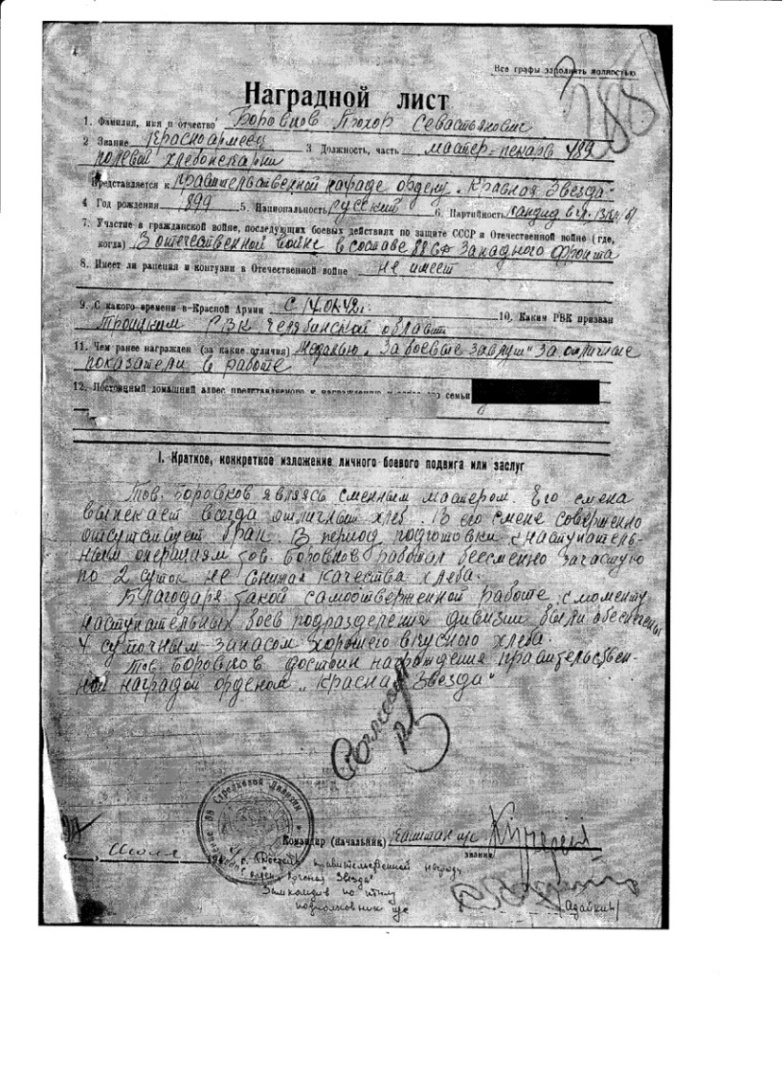 Все графы заполнять полностью
288
Наградной лист
1. Фамилия, имя и отчество Боровков Прохор Севастьянович
2 Звание Красноармеец 3 Должность, часть мастер-пекарь 489
полевой хлебопекарни
Представляется к правительственной награде ордену „Красная Звезда"
4 Год рождения 1899 5. Национальность русский 6. Партийность кандид
7. Участие в гражданской войне, последующих боевых действиях по защите СССР и Отечественной войне (где,
когда) В отечественной войне в составе 88 сд Западного фронта
8. Имеет ли ранения и контузии в Отечественной войне не имеет
9. С какого времени в Красной Армии С 10. Каким РВК призван
Троицким РВК Челябинской области
11. Чем ранее награжден (за какие отличия) Медалью „За боевые заслуги" за отличные
показатели в работе
12. Постоянный домашний адрес представляемого к награждению и адрес его семьи
I. Краткое, конкретное изложение личного боевого подвига или заслуг
Тов. Боровков являясь сменным мастером. Его смена
выпекает всегда отличный хлеб. В его смене совершенно
отсутствует брак. В период подготовки к наступатель-
ным операциям тов. Боровков работал бессменно зачастую
по 2 суток не снижая качества хлеба.
Благодаря такой самоотверженной работе с моменту
наступательных боев подразделения дивизии были обеспечены
4 суточным запасом хорошего вкусного хлеба.
Тов. Боровков достоин награждения правительствен-
ной наградой орденом „Красная Звезда"
88 Стрелковой Дивизии
Командир (Начальник) капитан
звание
Июля 194 г. правительственной награды
"орден Красная Звезда"
Зам. по тылу
подполковник